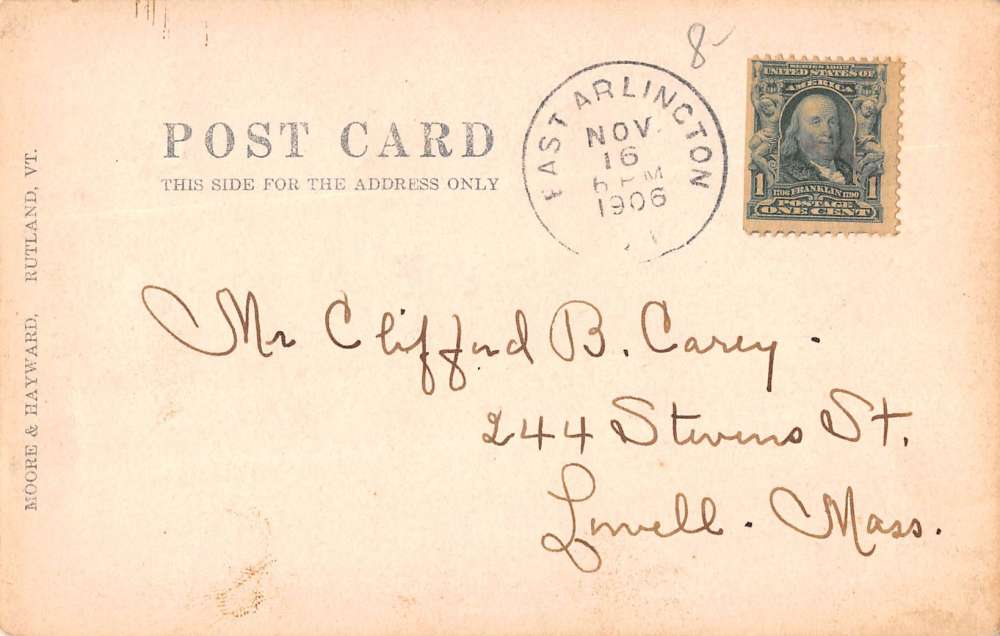 8-
SERIES 1902
UNITED STATES OF
AMERICA
1
1706 FRANKLIN 1790
1
POSTAGE
ONE CENT
EAST ARLINGTON
NOV.
16
6 PM
1906
POST CARD
THIS SIDE FOR THE ADDRESS ONLY
MOORE & HAYWARD, RUTLAND, VT.
Mr Clifford B. Carey.
244 Stevens St.
Lowell. Mass.